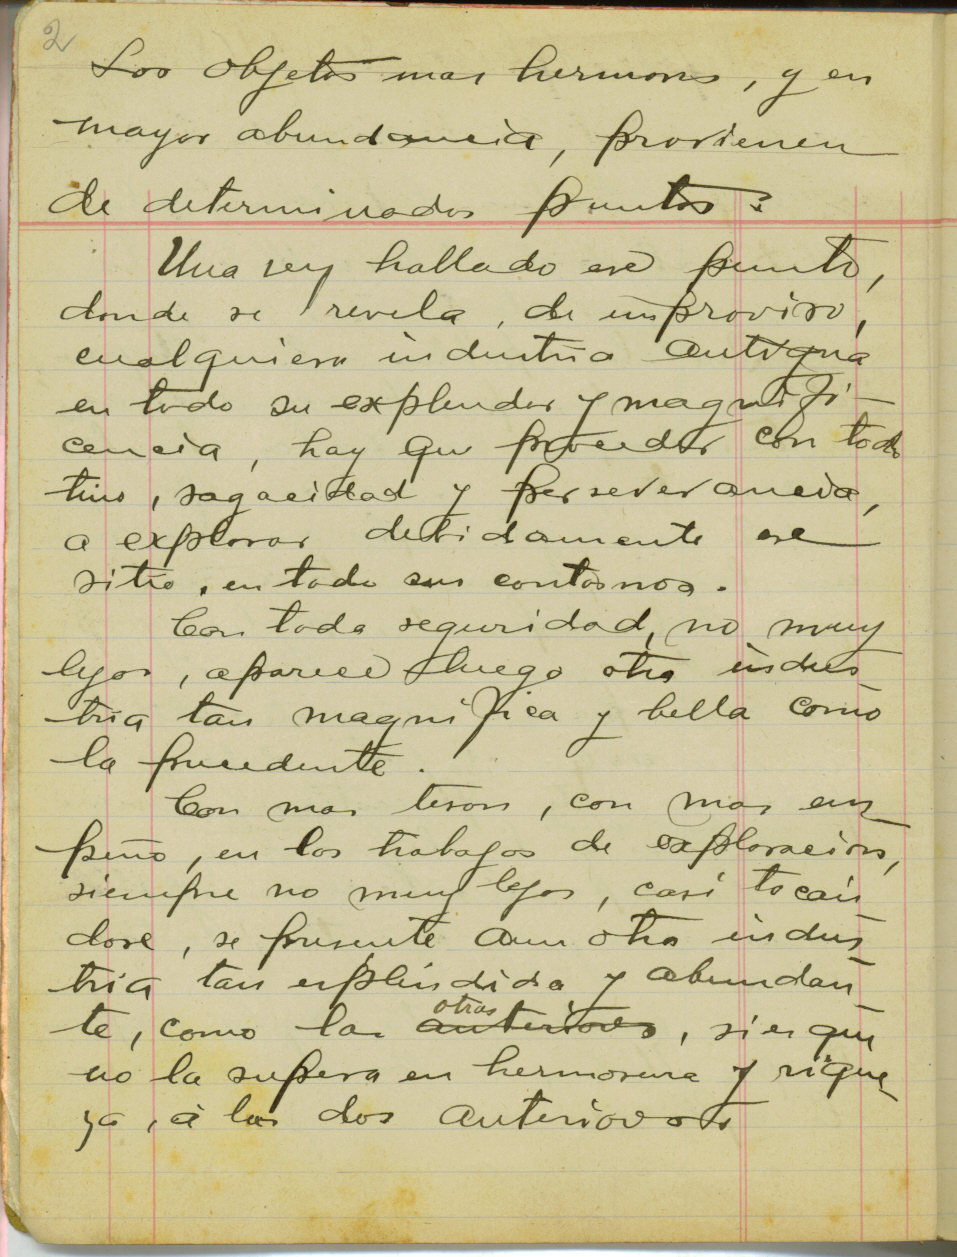 2
Los objetos mas hermosos, y en
mayor abundancia, provienen
de determinados puntos:
Una vez hallado ese punto,
donde se revela, de improviso,
cualquiera industria antigua
en todo su explendor y magnifi-
cencia, hay que proceder con todo
tino, sagacidad y perseverancia,
a explorar debidamente ese
sitio, en todo sus contornos.
Con toda seguridad, no muy
lejos, aparece luego otra indus-
tria tan magnifica y bella como
la precedente.
Con mas teson, con mas em-
peño, en los trabajos de exploracion,
siempre no muy lejos, casi tocan-
dose, se presente aun otra indus-
tria tan esplendida y abundan-
te, como las otras anteriores, si es que
no la supera en hermosura y rique-
za, á las dos anteriores